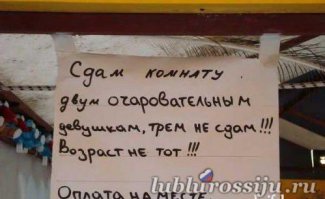 Сдам комнату
двум очаровательным
девушкам, трем не сдам!!!
Возраст не тот!!!
Оплата на месте
lublurossiju.ru